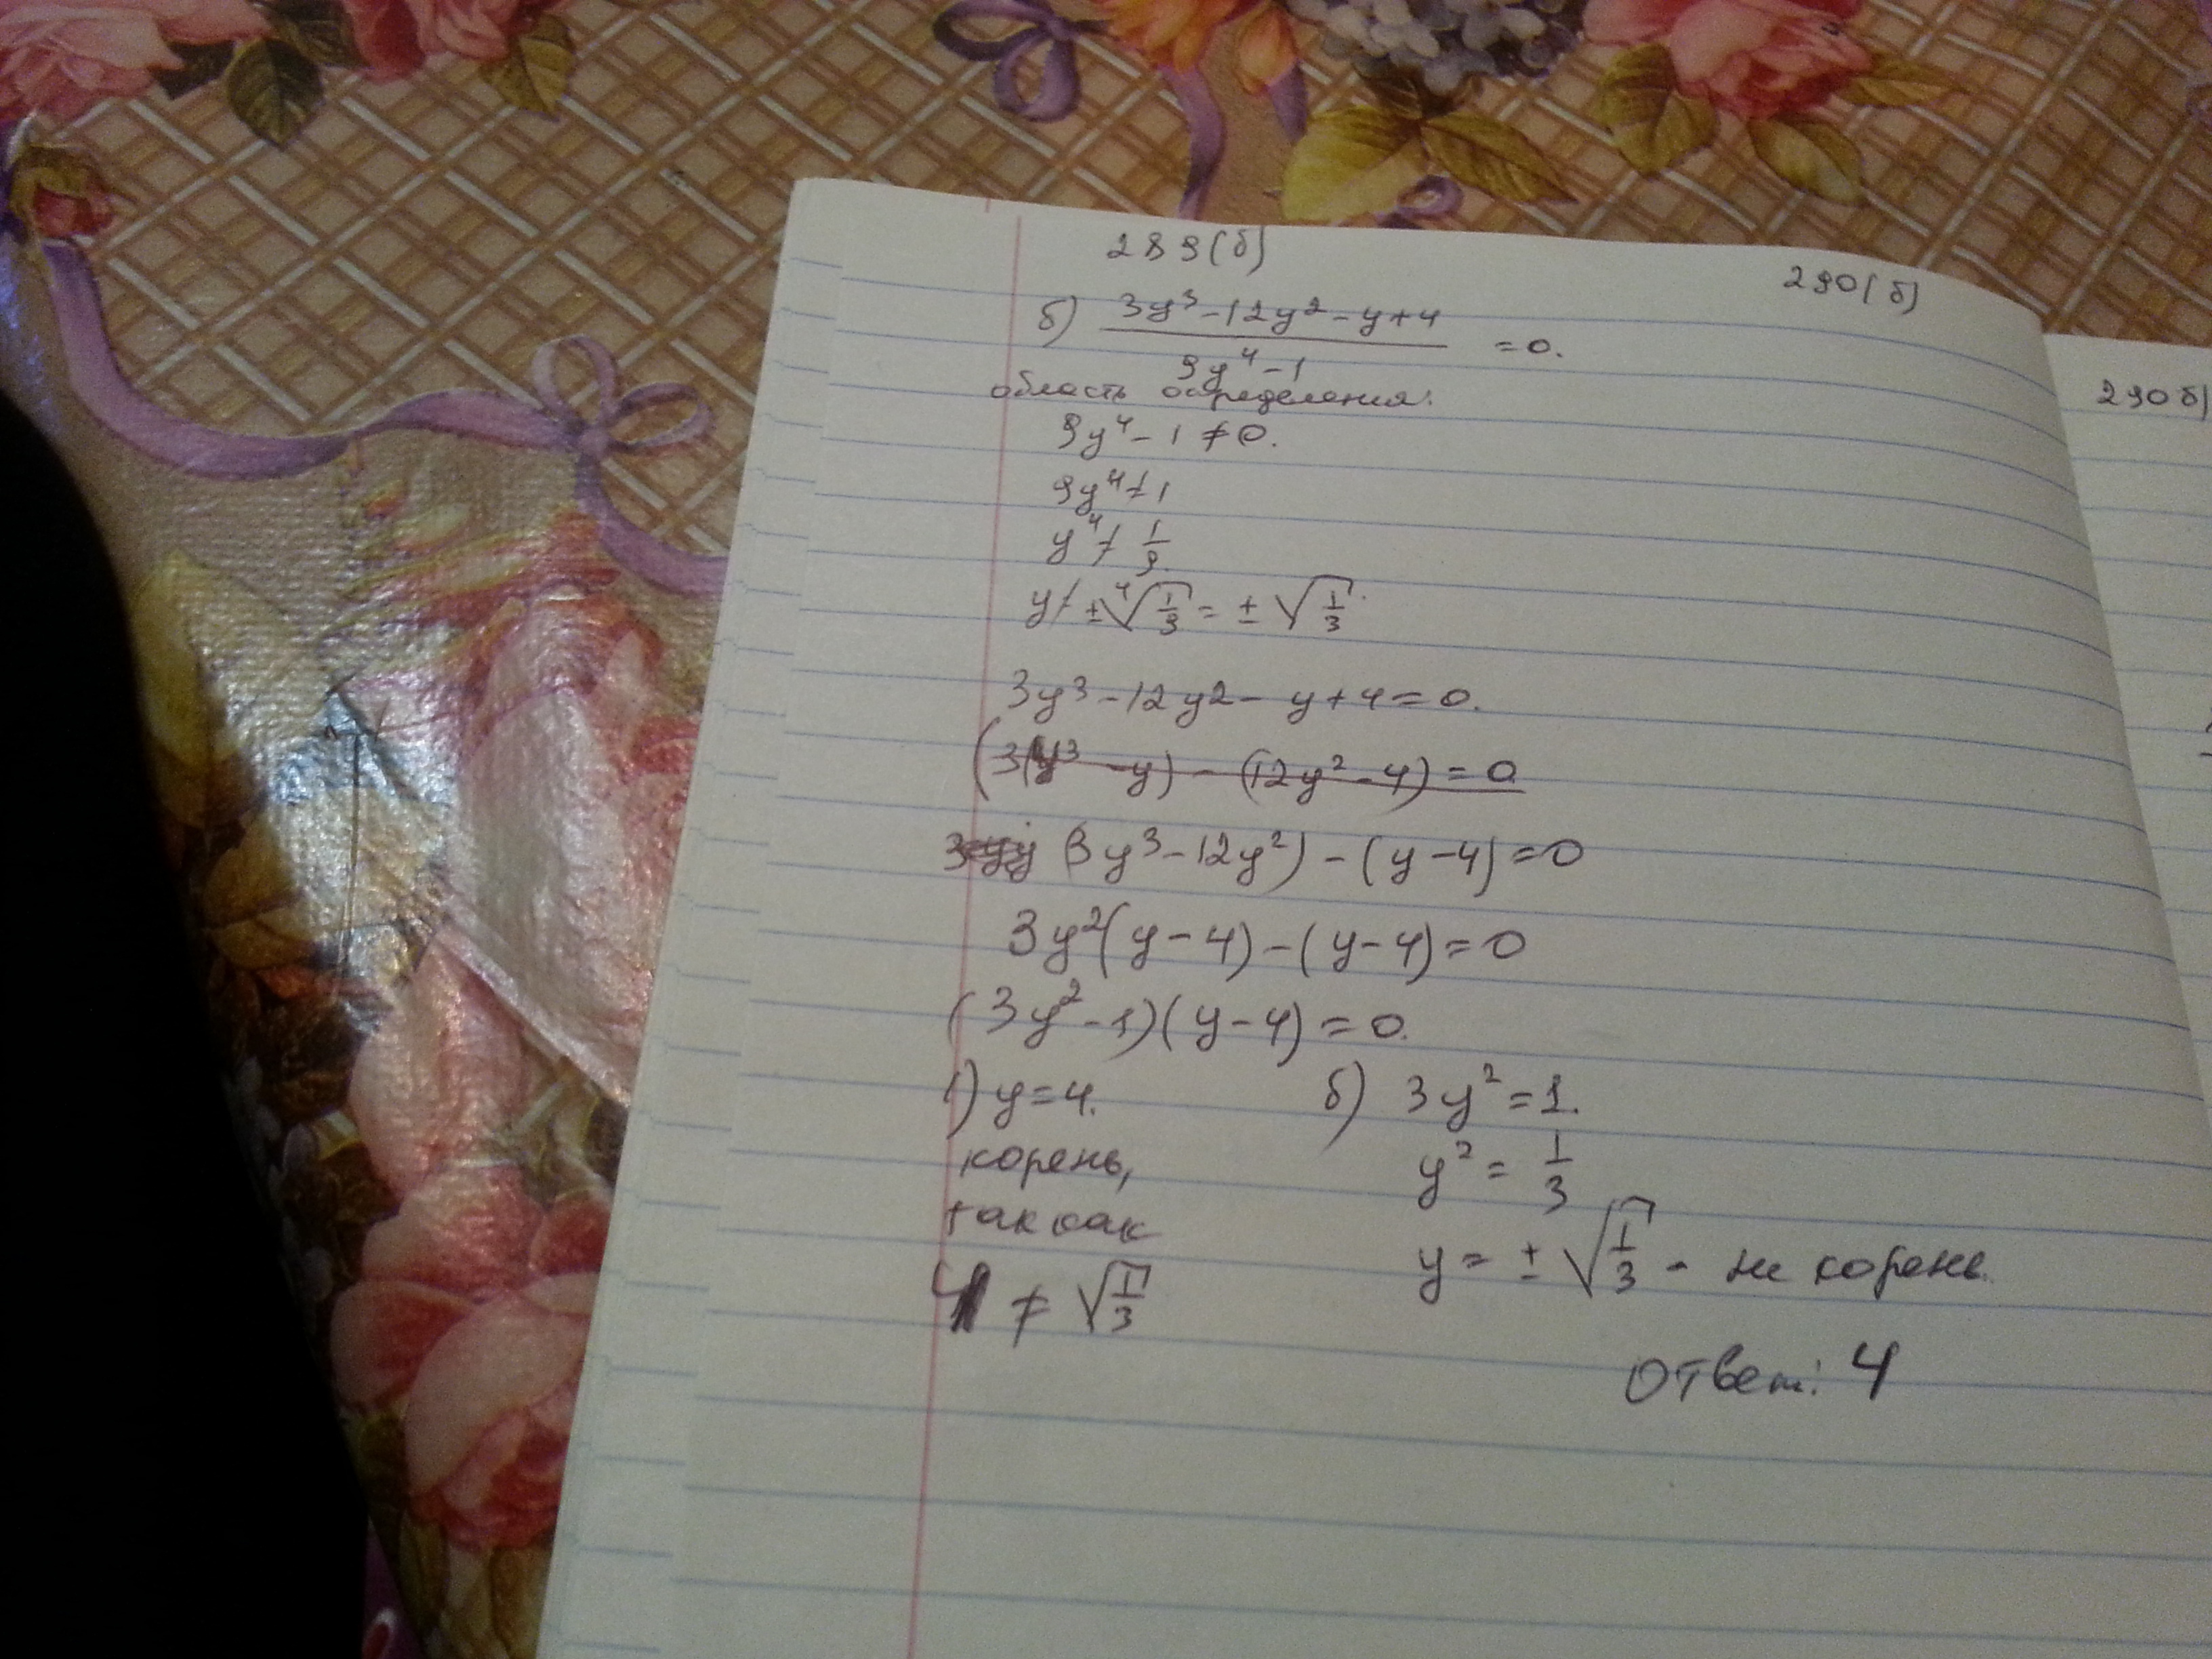 289(б)
290(б)
290б)
б) (3y³-12y²-y+4)/(9y⁴-1) =0.
область определения:
9y⁴-1≠0.
9y⁴≠1
y⁴≠1/9.
y≠±⁴√(1/3)=±√(1/3).
3y³-12y2-y+4=0.
(3(y³-y)-(12y²-4)=0
(3y³-12y²)-(y-4)=0
3y²(y-4)-(y-4)=0
(3y²-1)(y-4)=0.
1) y=4.
корень,
так как
4≠√(1/3)
б) 3y²=1.
y²=1/3
y=±√(1/3) - не корень.
Ответ: 4